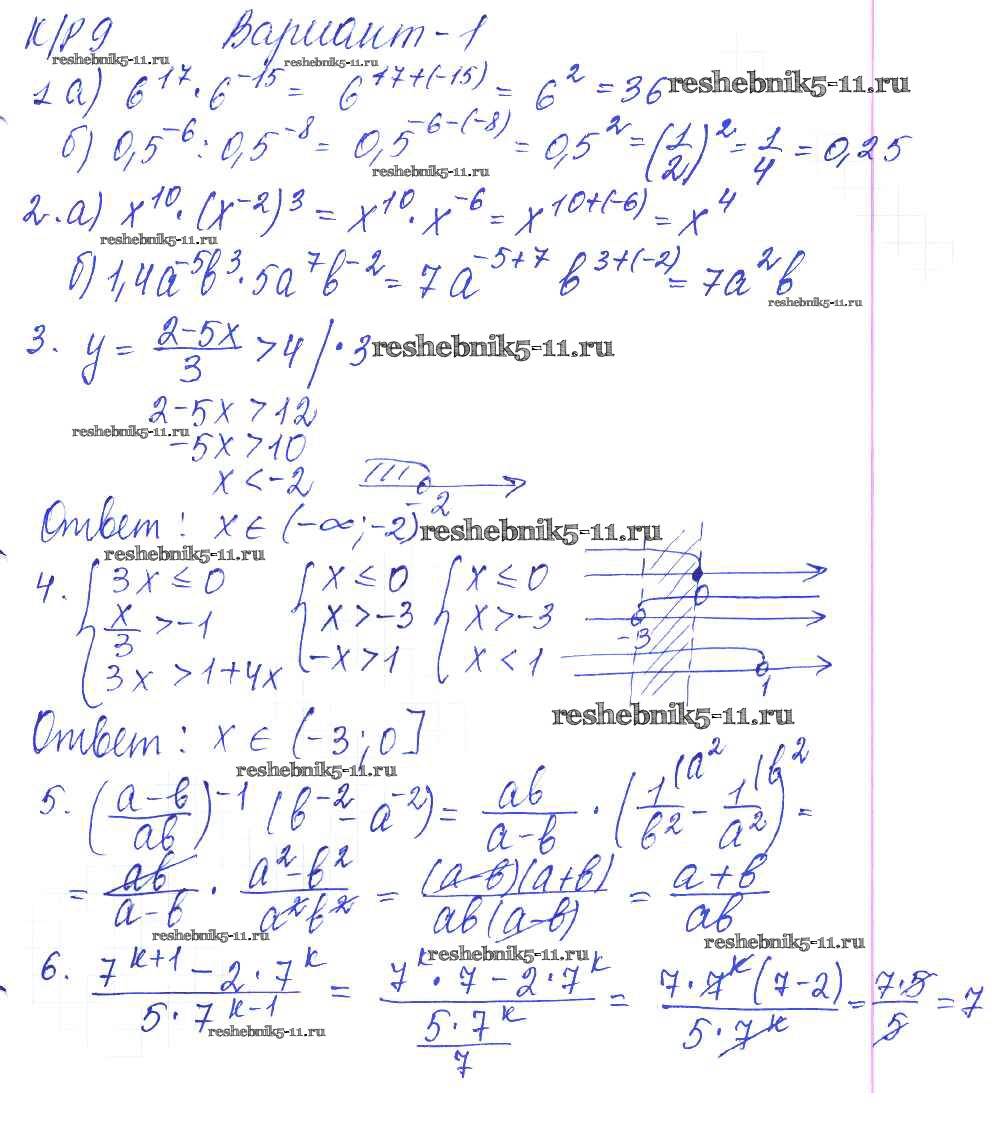 К/Р 9 Вариант-1
reshebnik5-11.ru reshebnik5-11.ru
1 а) 6^17 · 6^-15 = 6^17+(-15) = 6^2 = 36 reshebnik5-11.ru
б) 0,5^-6 : 0,5^-8 = 0,5^-6-(-8) = 0,5^2 = (1/2)^2 = 1/4 = 0,25
reshebnik5-11.ru
2. а) x^10 · (x^-2)^3 = x^10 · x^-6 = x^10+(-6) = x^4
reshebnik5-11.ru
б) 1,4a^-5b^3 · 5a^7b^-2 = 7a^-5+7 b^3+(-2) = 7a^2b
reshebnik5-11.ru
3. y = (2-5x)/3 > 4 | · 3 reshebnik5-11.ru
2-5x > 12
reshebnik5-11.ru
-5x > 10
x < -2
-2
Ответ: x ∈ (-∞; -2) reshebnik5-11.ru
reshebnik5-11.ru
4. { 3x ≤ 0 { x ≤ 0 { x ≤ 0
0
x/3 > -1 x > -3 x > -3
-3
3x > 1+4x -x > 1 x < 1
1
reshebnik5-11.ru
Ответ: x ∈ (-3; 0]
reshebnik5-11.ru
5. ((a-b)/ab)^-1 (b^-2 - a^-2) = ab/(a-b) · (1(a^2/b^2 - 1(b^2/a^2) =
= ab/(a-b) · (a^2-b^2)/(a^2b^2) = (a-b)(a+b)/(ab(a-b)) = (a+b)/ab
reshebnik5-11.ru reshebnik5-11.ru
reshebnik5-11.ru
6. (7^k+1 - 2·7^k)/(5·7^k-1) = (7^k · 7 - 2·7^k)/((5·7^k)/7) = (7·7^k (7-2))/(5·7^k) = (7·5)/5 = 7
reshebnik5-11.ru